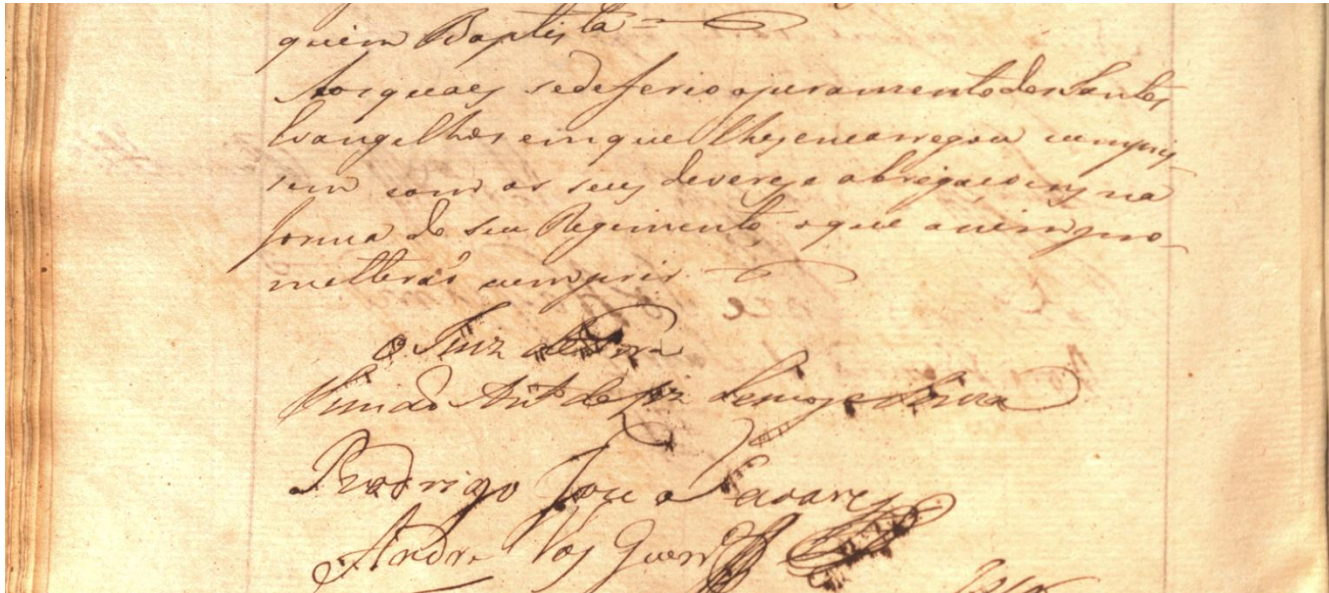 quim Baptista =
Aos quaes se deferio o juramento dos Santos
Evangelhos em que lhes encarregou cumpris
sem com os seus deveres e obrigacoens na
forma do seu Regimento o que assim pro-
metteraõ cumprir.
O Juiz
Rodrigo Jose Tavares
Andre Vas Guerr.º